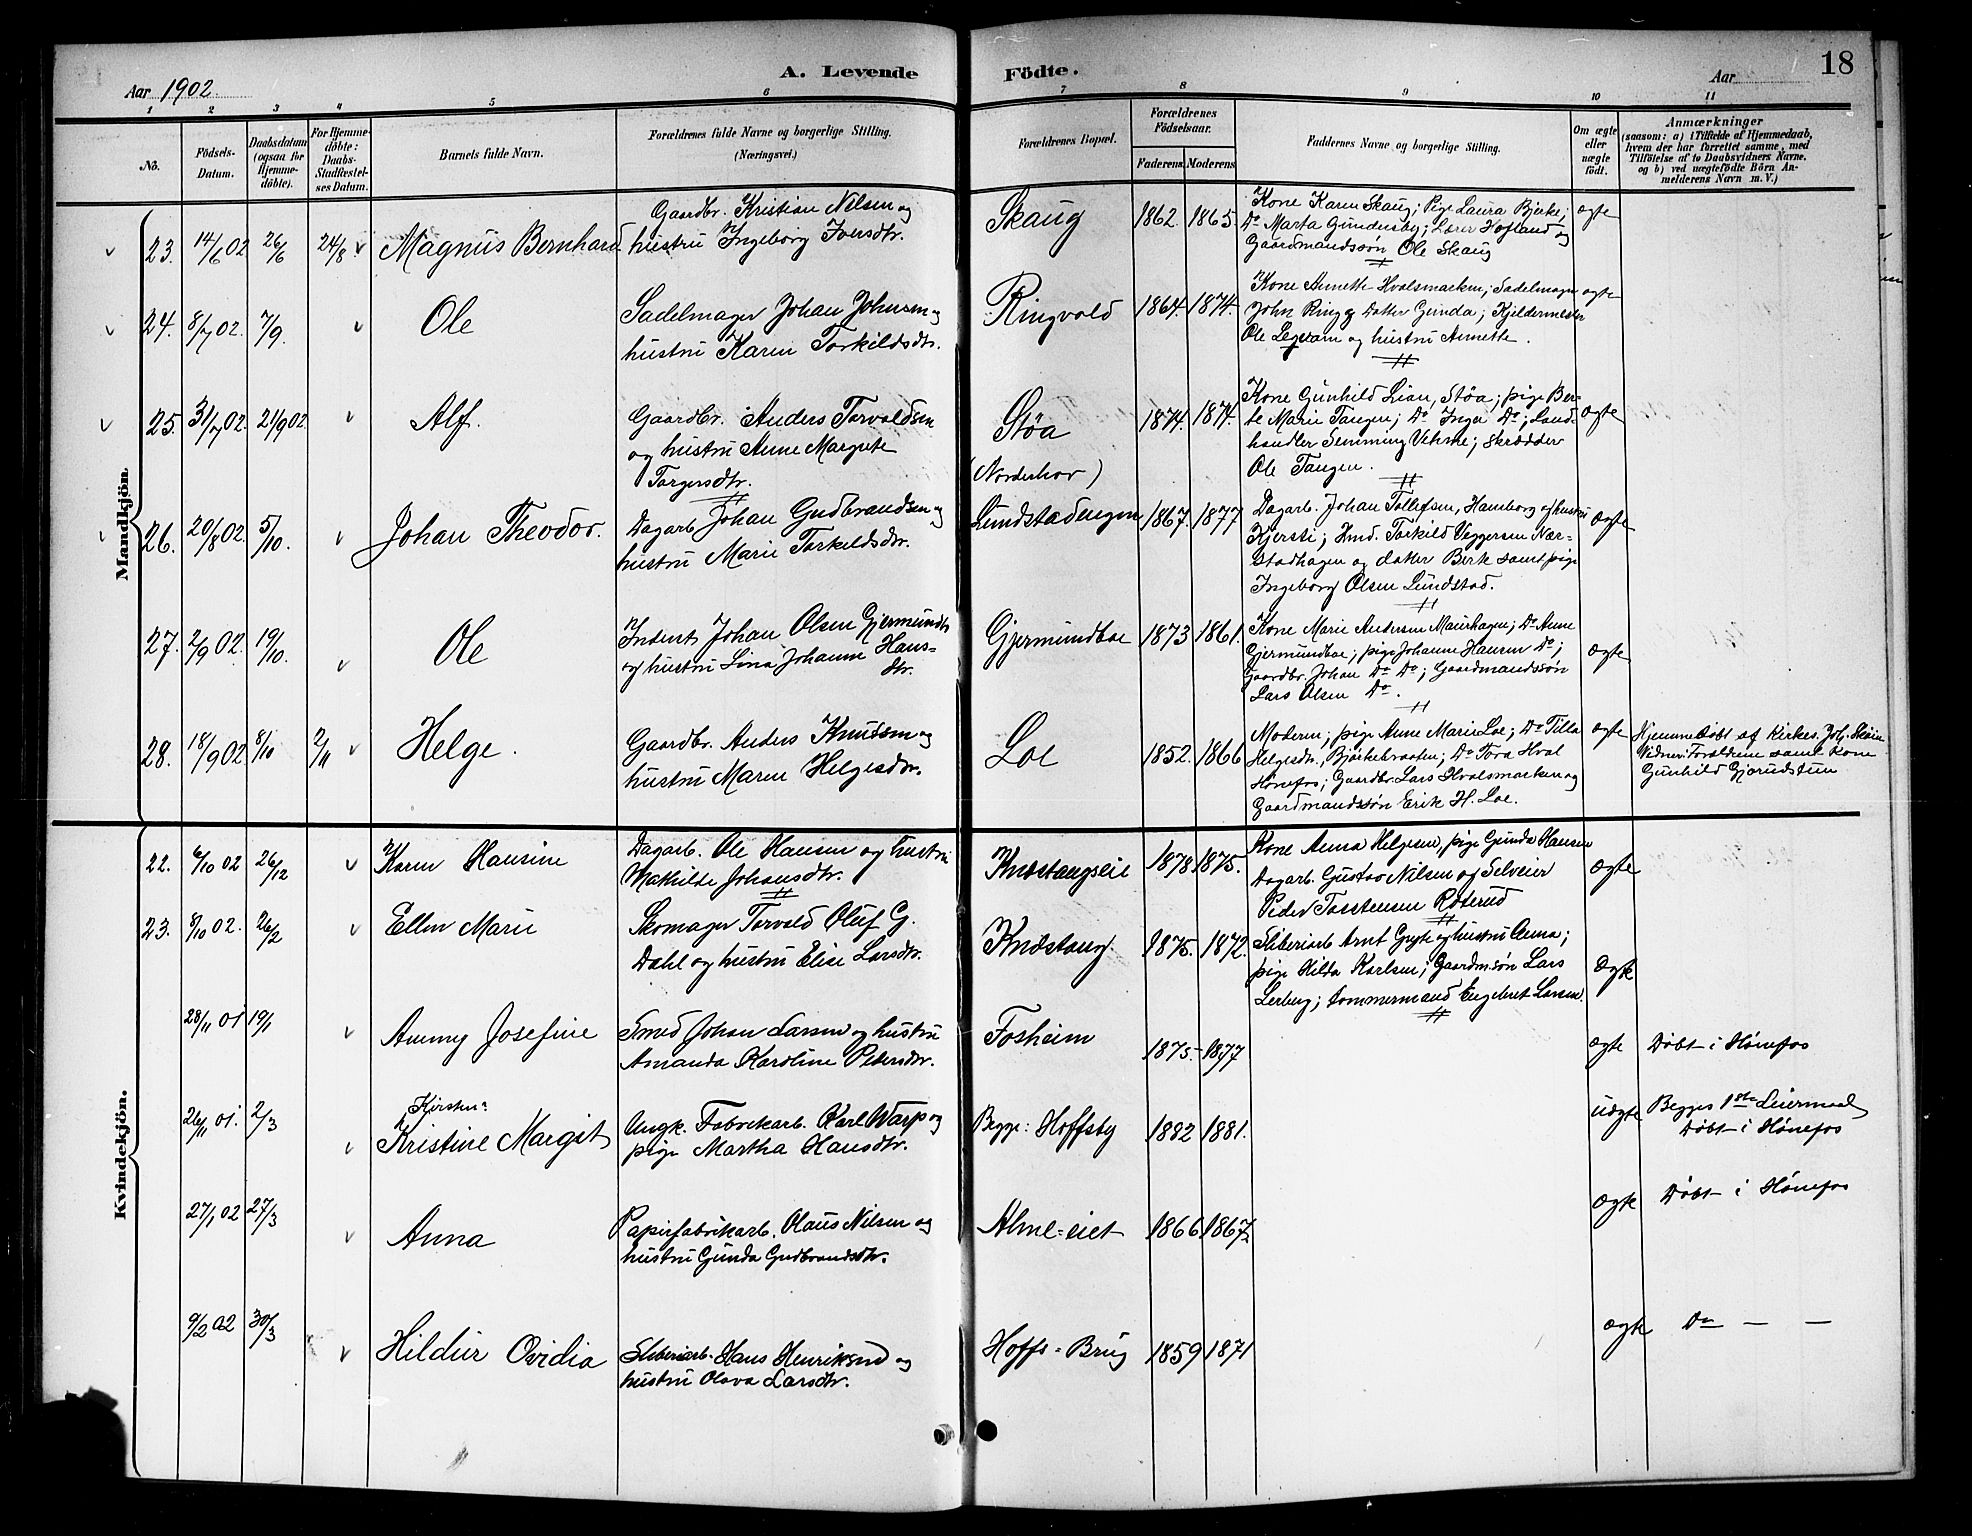 Aar 1902.
A. Levende
Födte.
Aar
18
1 2 3 4 5 6 7 8 9 10 11
No.
Födsels-
Datum.
Daabsdatum
(ogsaa for
Hjemme-
döbte).
For Hjemme-
döbte:
Daabs-
Stadfæstel-
ses Datum.
Barnets fulde Navn.
Forældrenes fulde Navne og borgerlige Stilling.
(Næringsvei.)
Forældrenes Bopæl.
Forældrenes
Födselsaar.
Faderens. Moderens.
Faddernes Navne og borgerlige Stilling.
Om ægte
eller
uægte
födt.
Anmærkninger
(saasom: a) i Tilfælde af Hjemmedaab,
hvem der har forrettet samme, med
Tilföielse af to Daabsvidners Navne.
og b) ved uægtefödte Börn An-
melderens Navn m. V.)
Mandkjön.
23. 14/6 02 26/6 24/8 Magnus Bernhard
Gaardbr. Kristian Nilsen og
hustru Ingeborg Iversdtr.
Skaug 1862. 1865.
Kone Karen Skaug; Pige Laura Bjerke;
Do Marta Gundersby; Lærer Hofland og
Gaardmandssøn Ole Skaug
ægte
24. 8/7 02. 7/9. Ole
Sadelmager Johan Johnsen og
hustru Karen Torkildsdtr.
Ringvold 1864. 1874.
Kone Annette Hvalsmarken; Sadelmager
John Ring og Datter Gunda; Kjeldermester
Ole Legvam og hustru Annette.
ægte
25. 31/7 02. 21/9 02. Alf.
Gaardbr. Anders Torvaldsen
og hustru Anne Margrete
Torgersdtr.
Støa
(Norderhov)
1874. 1874.
Kone Gunhild Lian, Støa; pige Ber-
te Marie Tangen; Do Inga Do; Land-
handler Semming Vehme; skrædder
Ole Tangen.
ægte
26. 20/8 02. 5/10. Johan Theodor.
Dagarb. Johan Gudbrandsen og
hustru Marie Torkildsdtr.
Lundstadengen 1867. 1877
Dagarb. Johan Tollefsen, Hamborg og hustru
Kjersti; Hmd. Torkild Veggersen Nær-
stadhagen og datter Berte samt pige
Ingeborg Olsen Lundstad.
ægte
27. 2/9 02. 19/10. Ole
Inderst Johan Olsen Gjermundbo
og hustru Lina Johanne Hans-
dtr.
Gjermundboe 1873 1861.
Kone Marie Andersen Maurhagen; Do Anne
Gjermundboe; pige Johanne Hansen Do;
Gaardbr. Johan Do Do; Gaardmandssøn
Lars Olsen Do.
ægte
28. 18/9 02. 8/10 2/11 Helge.
Gaardbr. Anders Knudsen og
hustru Maren Helgesdtr.
Loe 1852. 1866
Moderen; pige Anne Marie Loe; Do Tilla
Helgesdtr. Bjørkebraaten; Do Tora Hval
Hønefos; Gaardbr. Lars Hvalsmarken og
Gaardmandssøn Erik H. Loe.
ægte
Hjemmedøbt af Kirkes. Joh. Skøien
Vidner: Forældrene samt Kone
Gunhild Gjerudstun
Kvindekjön.
22. 6/10 02 26/12 Karen Hansine
Dagarb. Ole Hansen og hustru
Mathilde Johansdtr.
Knæstangseie 1878. 1875.
Kone Anna Helgesen, pige Gunda Hansen
Dagarb. Gustav Nilsen og Selveier
Peder Torstensen Røterud
ægte
23. 8/10 02. 26/2 Ellen Marie
Skomager Torvald Oluf G.
Dahl og hustru Elise Larsdtr.
Knæstang. 1875. 1872.
Sliberiarb Arnt Gryte og hustru Anna;
pige Hilda Karlsen; Gaardm.søn Lars
Lerberg; tømmermand Engebret Larsen.
ægte
28/11 01 19/1 Ammy Josefine
Smed Johan Larsen og hustru
Amanda Karoline Pedersdtr.
Fosheim 1875. 1877
ægte Døbt i Hønefos
26/11 01. 2/3 Kirsten
Kristine Margit
Ungk. Fabrikarb. Karl Warp og
pige Martha Hansdtr.
Begge: Hoffsby 1882 1881.
uægte Begges 1ste Leiermaal
Døbt i Hønefos
27/1 02 27/3 Anna
Papirfabrikarb. Olaus Nilsen og
hustru Gunda Gudbrandsdtr.
Alme-eiet 1866 1867
ægte Døbt i Hønefos
9/2 02 30/3 Hildur Ovidia
Sliberiarb. Hans Henriksen og
hustru Olava Larsdtr.
Hoffs-Brug 1859 1871
ægte Do — —